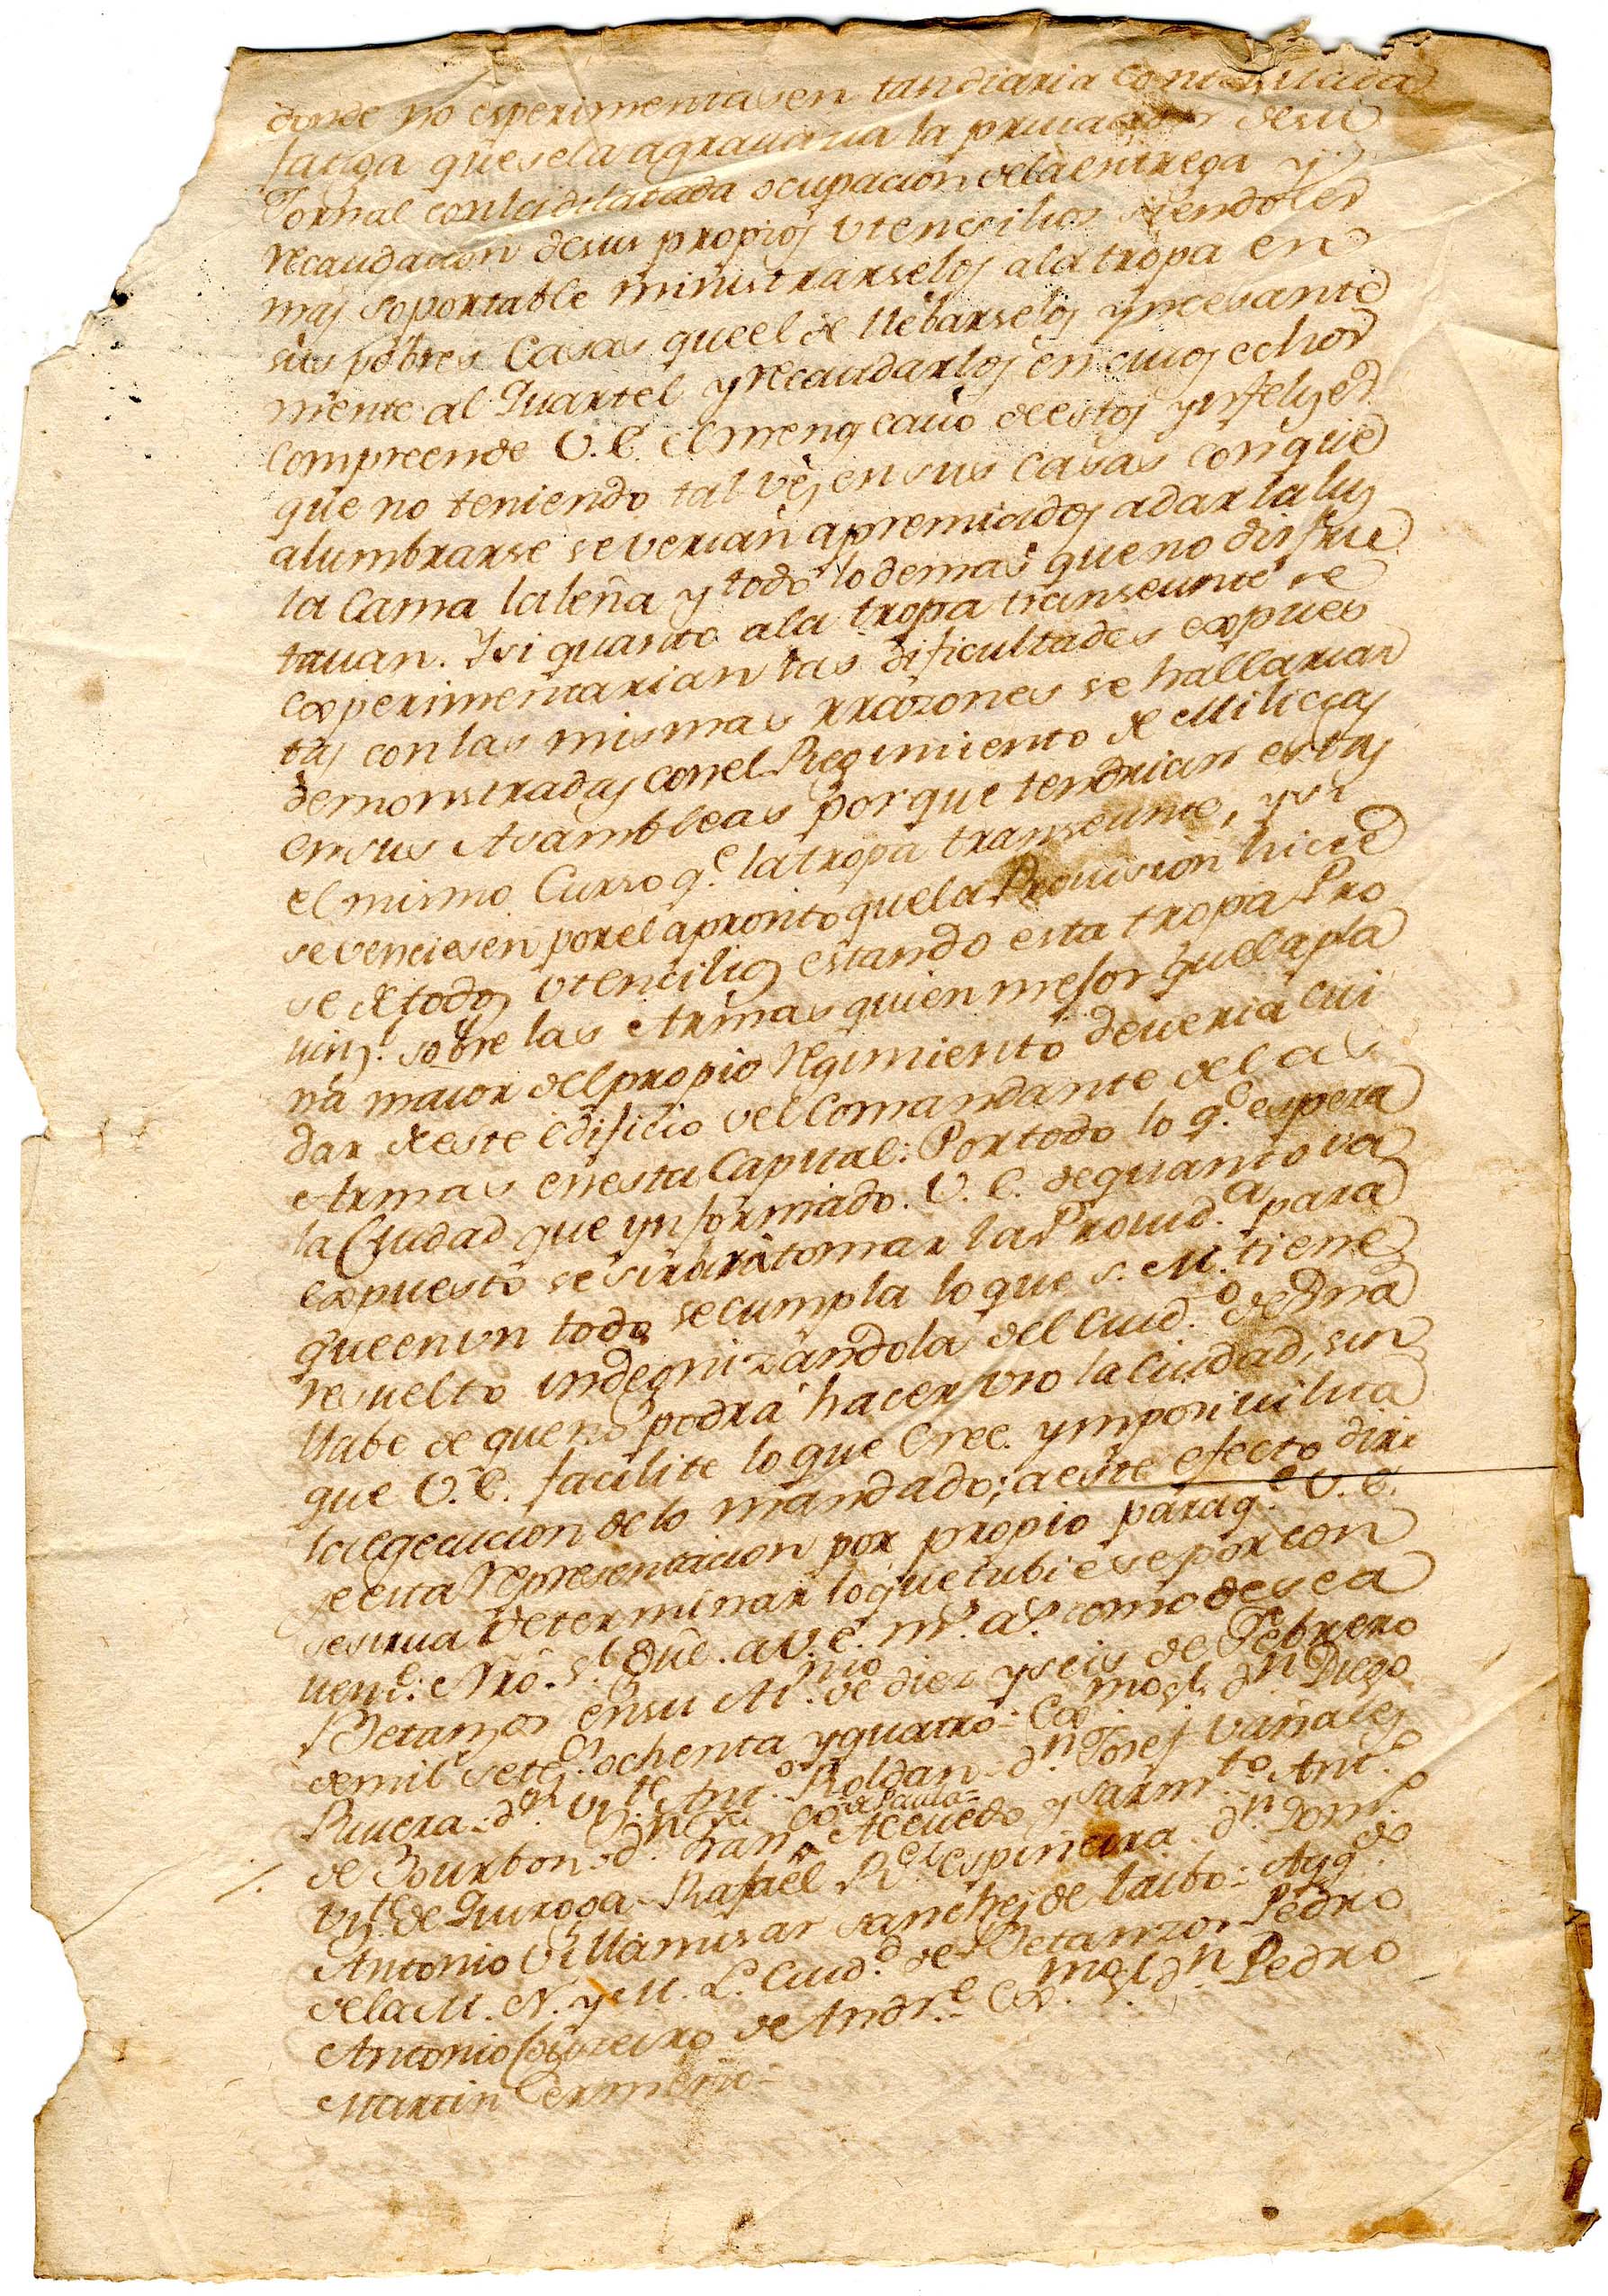 donde no esperimentasen tandiaria
fatiga quesela agravaria la privacion desu
Jornal conladilatada ocupacion delaentrega y
recaudacion desus propios vtencilios siendoles
mas soportable ministrarselos alatropa en
sus pobres Casas queel de llebarselos yncesante
mente al Quartel yrecaudarlos en cuios echos
Compreende V.E. el menoscavo deestos ynfelizes
que no teniendo tal vez ensus Casas conque
alumbrarse severian apremiados adar laluz
la Cama laleña y todo lodemas queno disfru
tavan. Ysi quanto ala tropa transeunte se
experimentarian las dificultades expues
tas conlas mismas rrazones se hallarian
demonstradas conel Regimiento de Milicias
ensus Asambleas porque tendrian estas
el mismo Curso q.e latropa transeunte, ysi
sevenciesen porelapronto quela Provision hicie
se de todos vtencilios estando esta tropa Pro
vinz.l sobre las Armas quien mejor quelapla
na maior del propio regimiento deveria cui
dar deeste edificio vel Comandante de las
Armas enesta Capital: Portodo lo q.e espera
la Ciudad que ynformado. V.E. dequanto va
expuesto se sirbira tomar la Provid.a para
queenvn todo secumpla loque S.M. tiene
resuelto indegnizandola del Cuid.o de Vna
llabe de queno podrá hacer vso la Ciudad, sin
que V.E. facilite loque Cree. ymposivilita
laegecucion delo mandado; aeste efecto diri
je esta representacion por propio paraq.e V.E.
sesirva determinar loquetubiese por con
ven.te: Nrô. S.r Gûe. aV.E. m.s a.s como desea
Betanzos ensu A.nio de diez yseis de Febrero
demil setez.os ochenta yquatro: Ex.mo S.r d.n Diego
Rivera - d.n Viz.te Ant.o Roldan - d.n Josef Vañales
de Bourbon - d.n Fran.co dePaula Acevedo y Sarm.to Ant.o
Viz.te de Quiroga - Rafael R.l espiñeira - d.n Dom.o
Antonio Villamisar Sanchez de taibo: Aqq.do
dela M.N. y M.L. Ciud.d de Betanzos Pedro
Antonio de Andr.e - Ex.mo S.r d.n Pedro
Martin Cermeño -